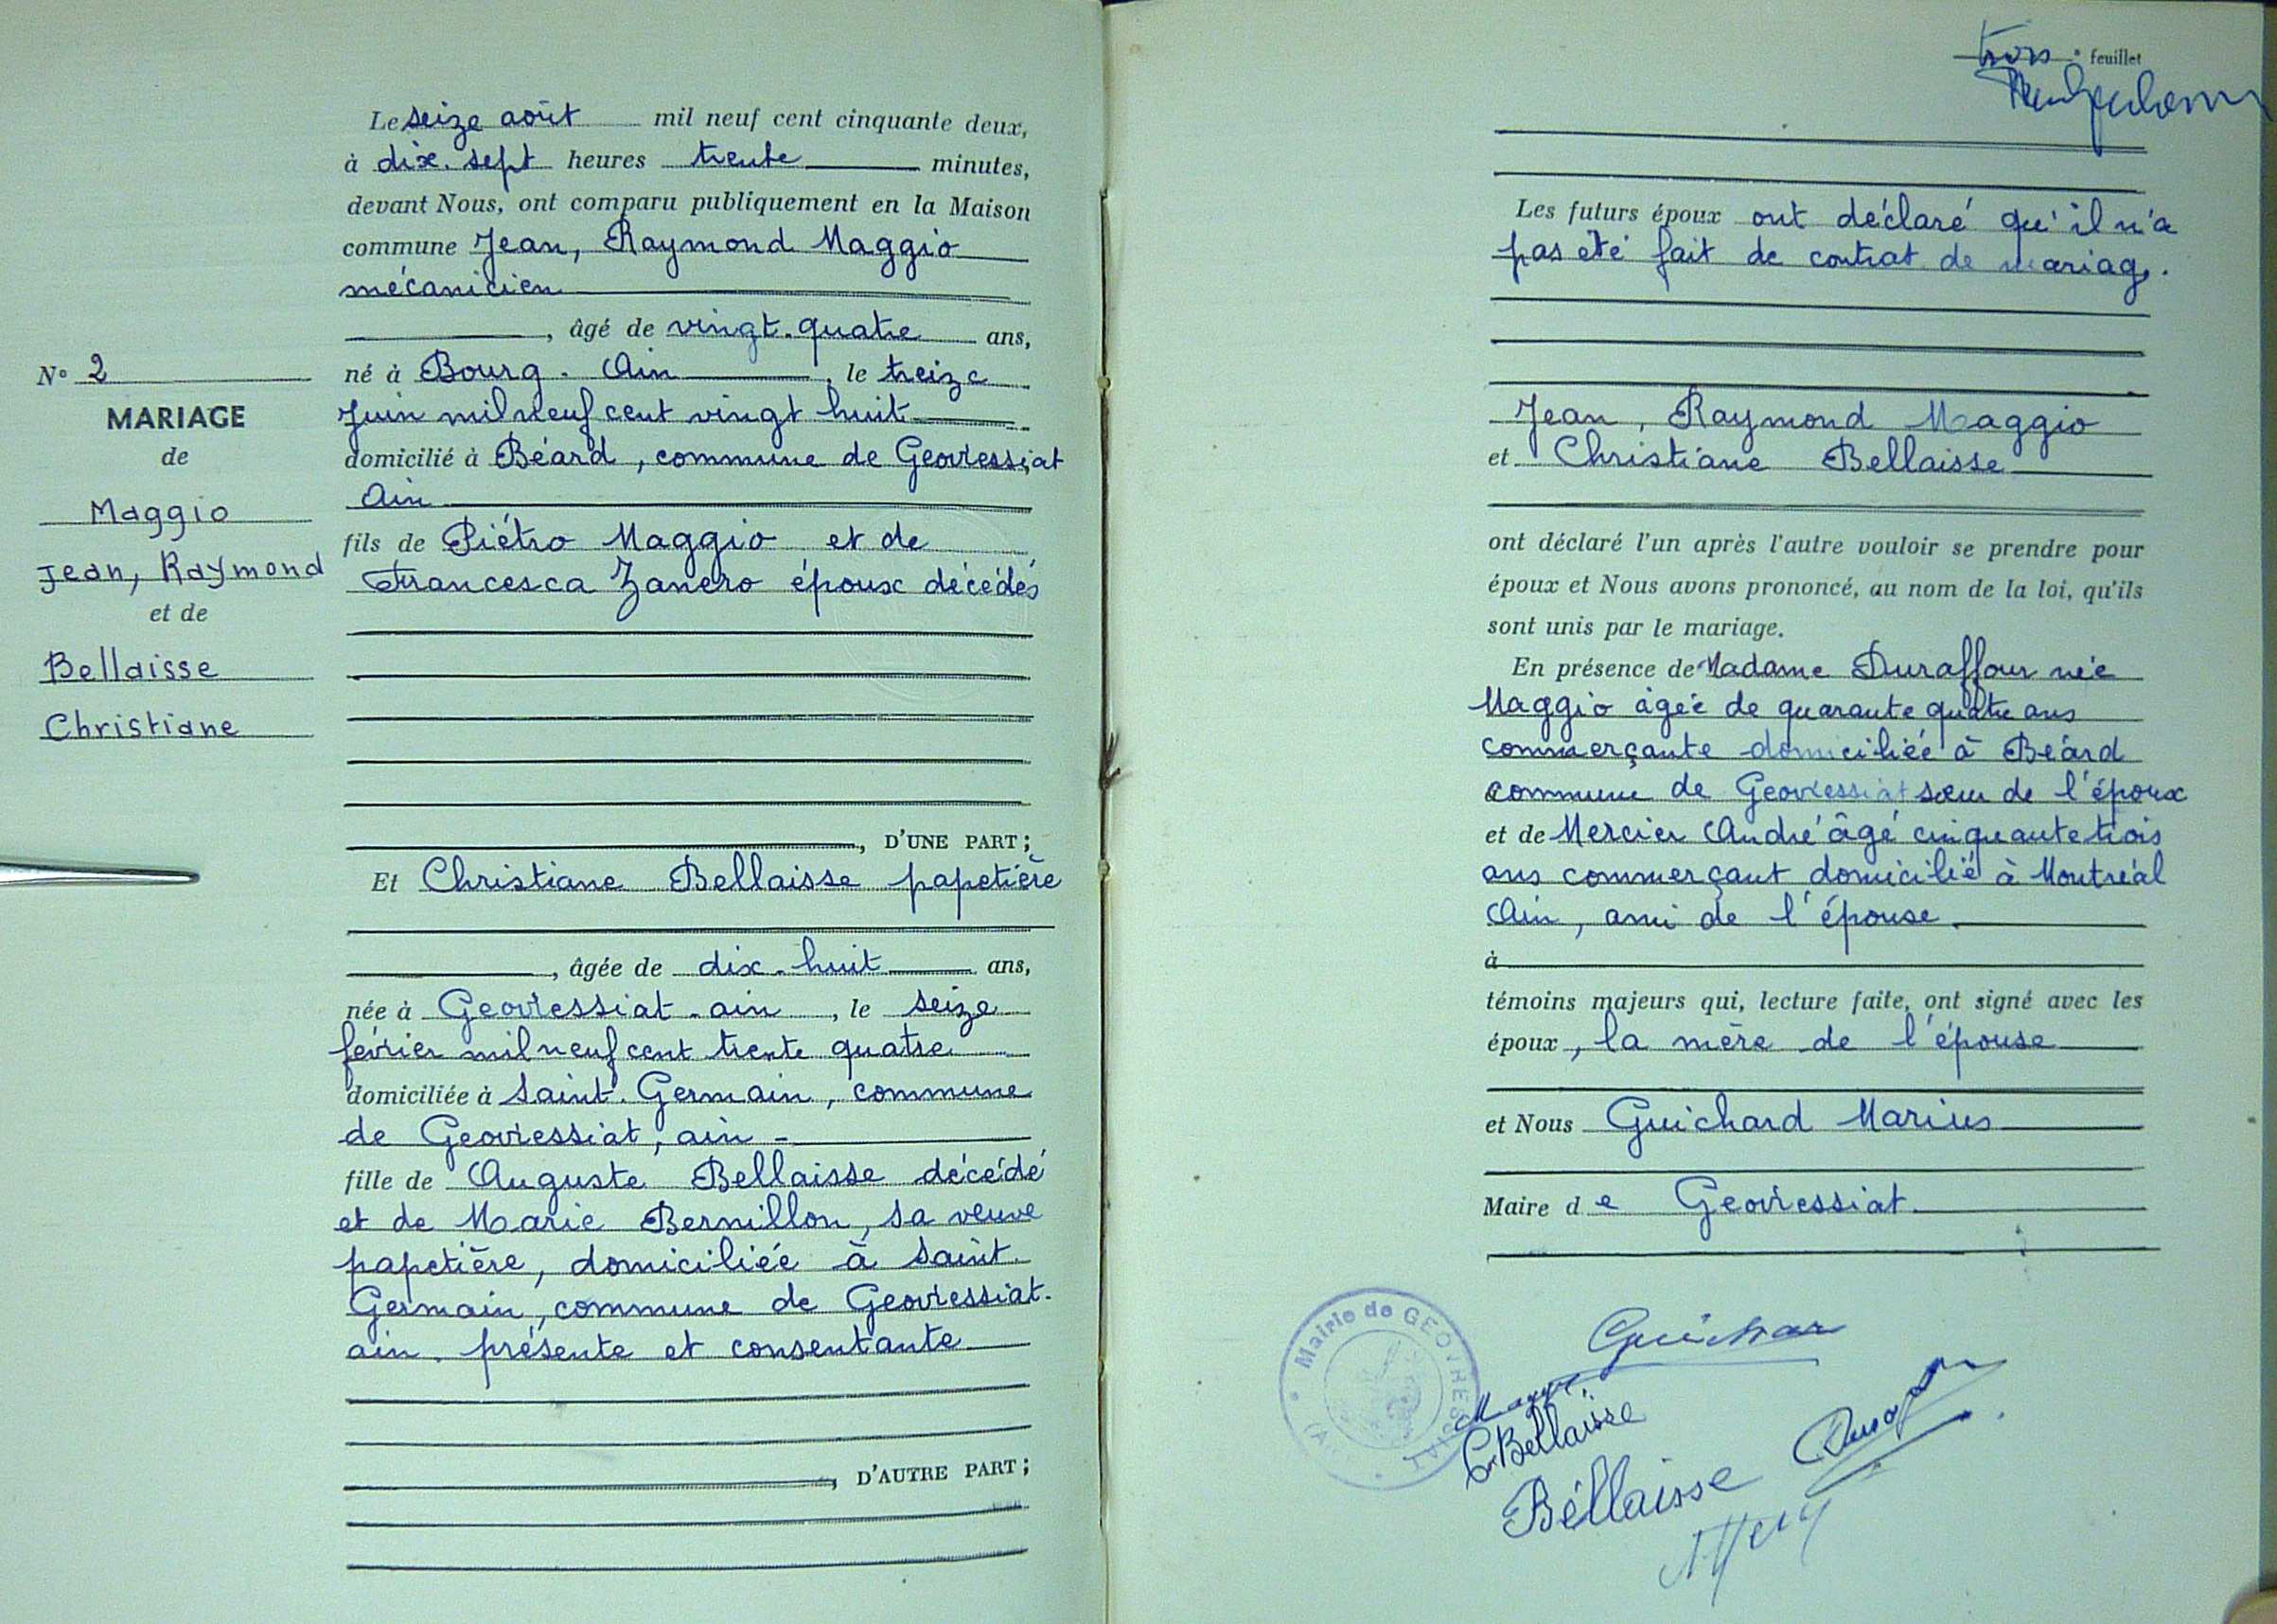 Le seize août mil neuf cent cinquante deux,
à dix-sept heures trente minutes,
devant Nous, ont comparu publiquement en la Maison
commune Jean, Raymond Maggio
mécanicien
, âgé de vingt-quatre ans,
né à Bourg - Ain, le treize
Juin mil neuf cent vingt huit
domicilié à Béard, commune de Geovressiat
Ain
fils de Piétro Maggio et de
Francesca Zanero époux décédés
, D'UNE PART ;
Et Christiane Bellaisse papetière
, âgée de dix-huit ans,
née à Geovressiat - ain, le seize
février mil neuf cent trente quatre
domiciliée à Saint-Germain, commune
de Geovressiat, ain -
fille de Auguste Bellaisse décédé
et de Marie Bernillon, sa veuve
papetière, domiciliée à Saint-
Germain, commune de Geovressiat-
ain. présente et consentante
, D'AUTRE PART ;
N° 2
MARIAGE
de
Maggio
Jean, Raymond
et de
Bellaisse
Christiane
trois e feuillet
Les futurs époux ont déclaré qu'il n'a
pas été fait de contrat de mariage.
Jean, Raymond Maggio
et Christiane Bellaisse
ont déclaré l'un après l'autre vouloir se prendre pour
époux et Nous avons prononcé, au nom de la loi, qu'ils
sont unis par le mariage.
En présence de Madame Duraffour née
Maggio âgée de quarante quatre ans
commerçante domiciliée à Béard
commune de Geovressiat sœur de l'époux
et de Mercier André âgé cinquante trois
ans commerçant domicilié à Montréal
Ain, ami de l'épouse.
à
témoins majeurs qui, lecture faite, ont signé avec les
époux, la mère de l'épouse
et Nous Guichard Marius
Maire de Geovressiat.
Mairie de GEOVRESSIAT
C. Bellaisse
Béllaisse